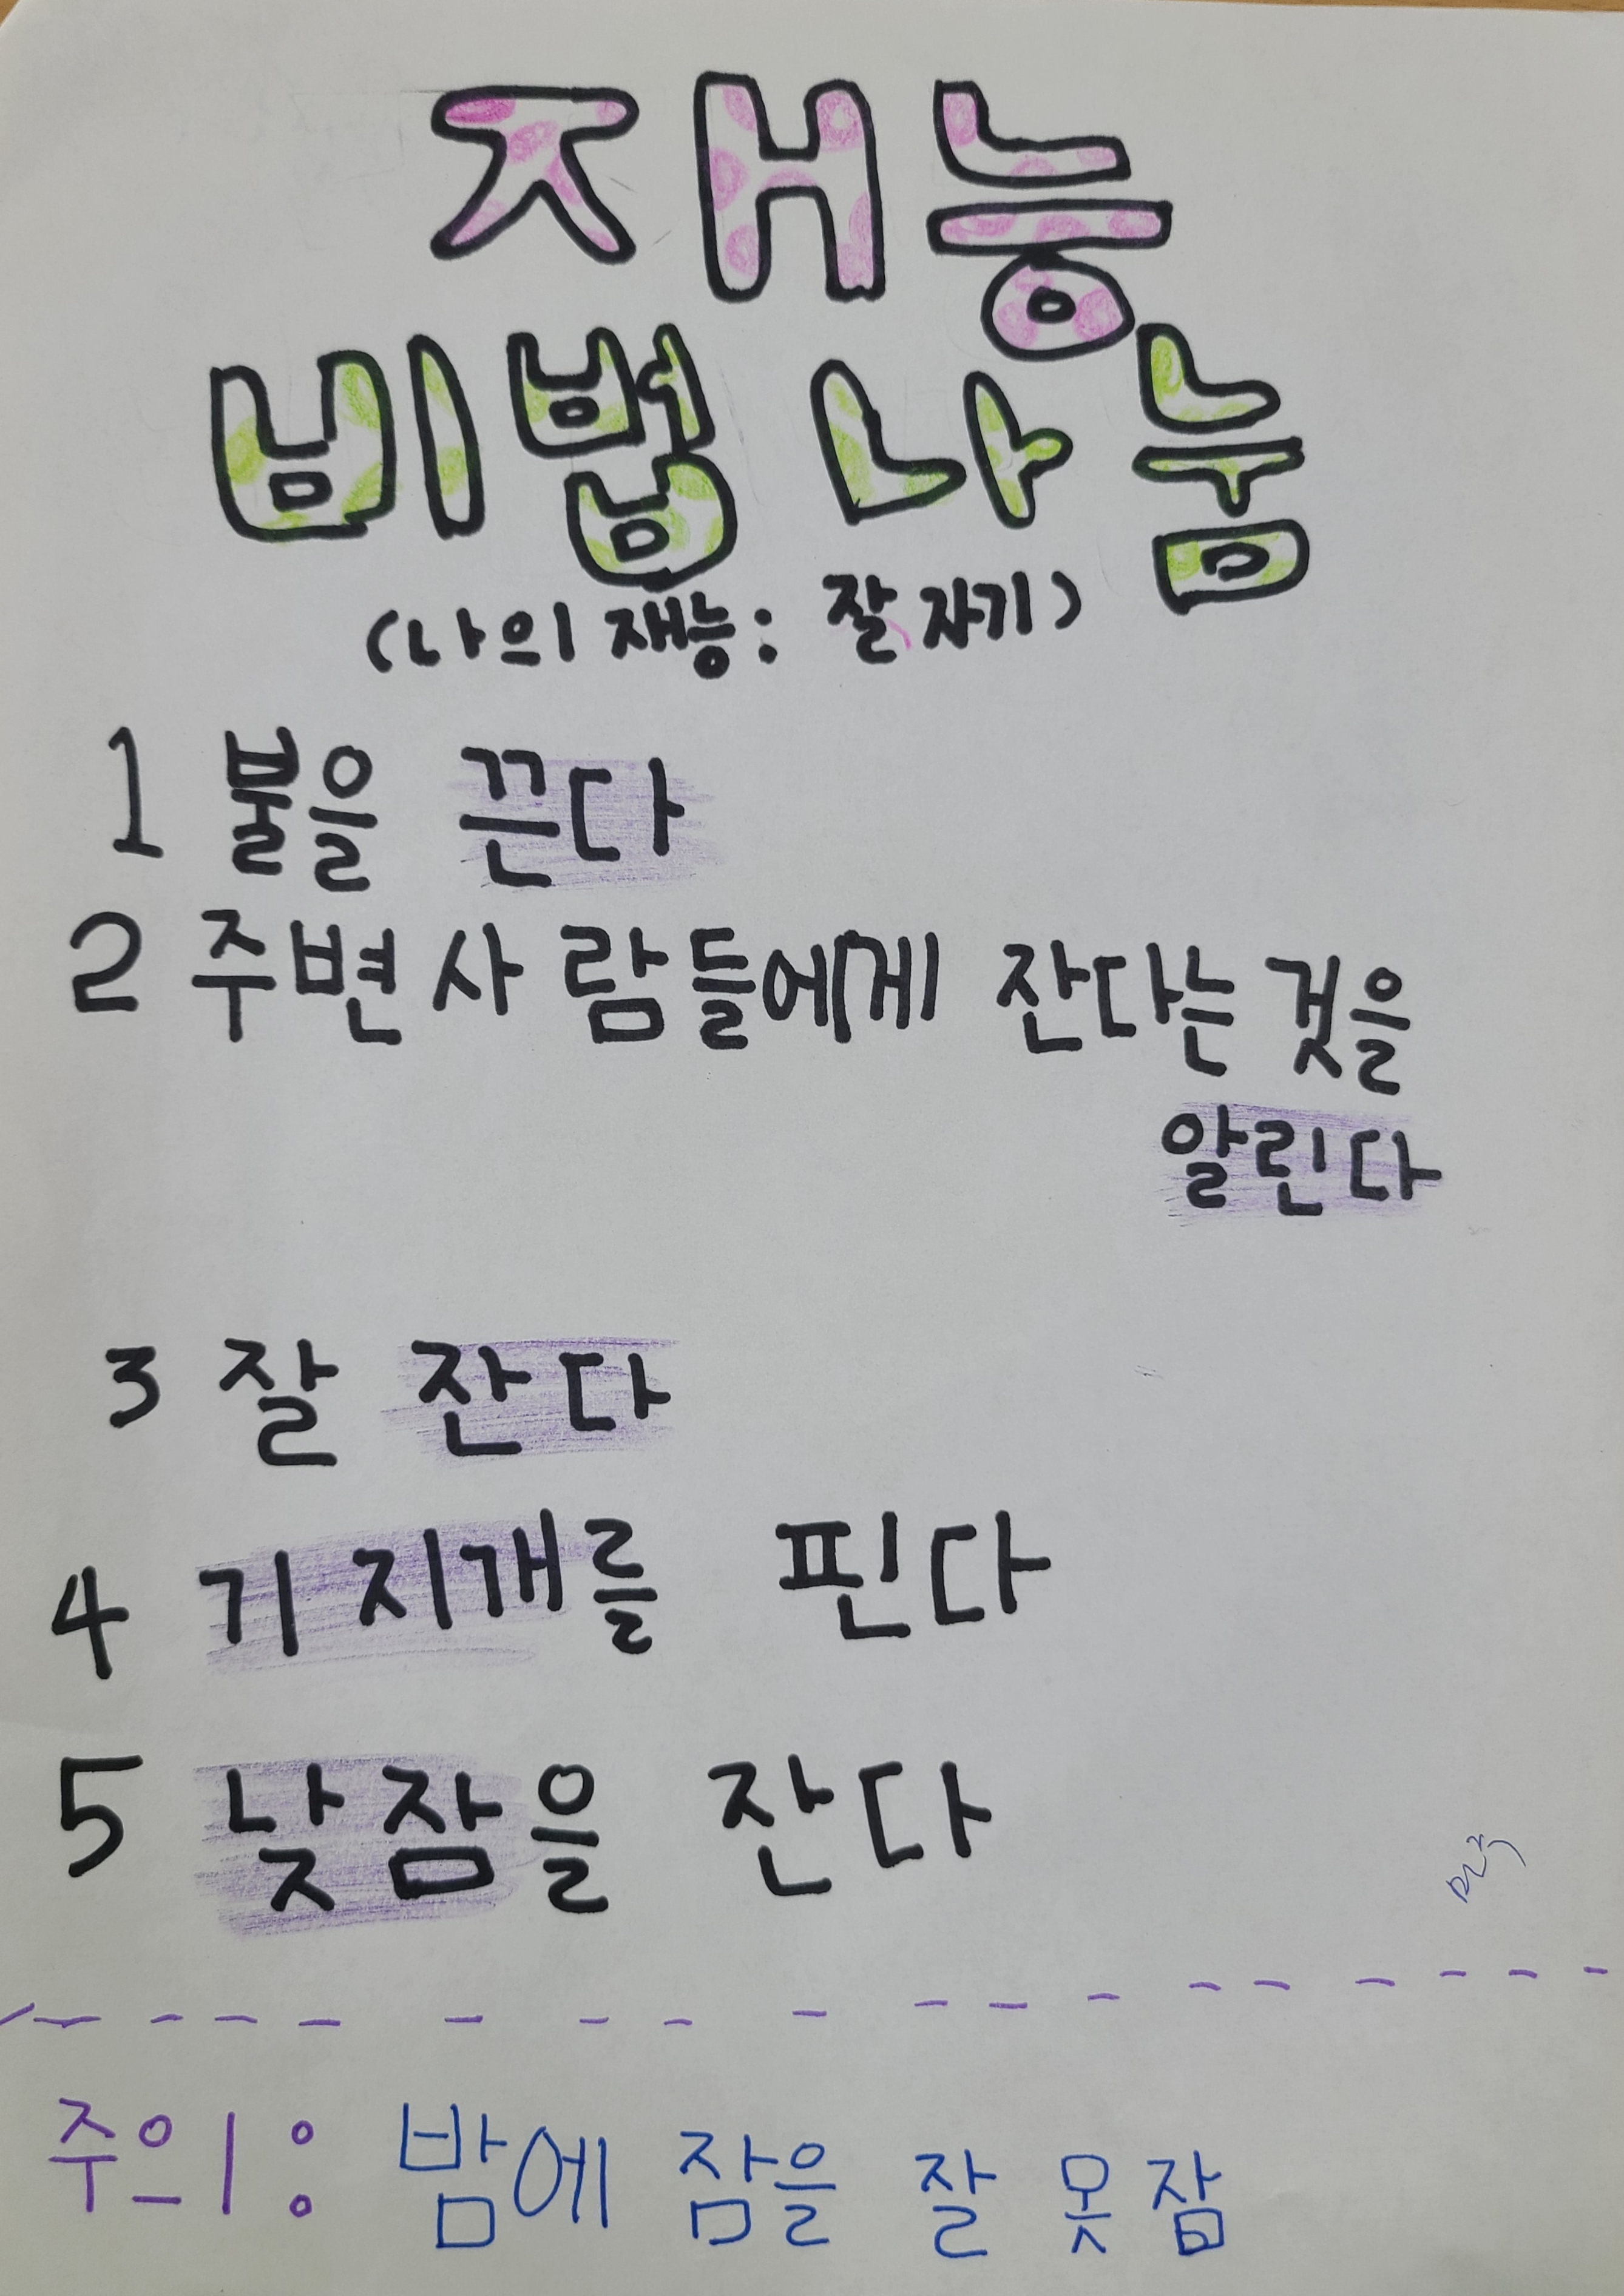 재능
비법 나눔
(나의 재능: 잘 자기)
1 불을 끈다
2 주변 사람들에게 잔다는 것을
알린다
3 잘 잔다
4 기지개를 핀다
5 낮잠을 잔다
주의: 밤에 잠을 잘 못잠